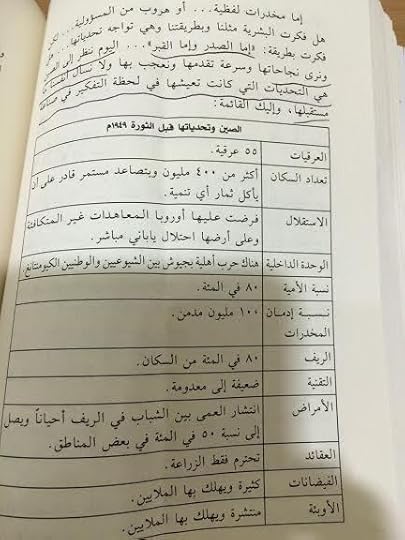 إما مخدرات لفظية... أو هروب من المسؤولية...
هل فكرت البشرية مثلنا وبطريقتنا وهي تواجه تحدياتها... أم
فكرت بطريقة: «إما الصدر وإما القبر»... اليوم ننظر إلى الصين
ونرى نجاحاتها وسرعة تقدمها ونعجب بها ولا نسأل أنفسنا ما
هي التحديات التي كانت تعيشها في لحظة التفكير في صناعة
مستقبلها، وإليك القائمة:
الصين وتحدياتها قبل الثورة ١٩٤٩م
العرقيات ٥٥ عرقية.
تعداد السكان أكثر من ٤٠٠ مليون ويتصاعد مستمر قادر على أن
يأكل ثمار أي تنمية.
الاستقلال فرضت عليها أوروبا المعاهدات غير المتكافئة
وعلى أرضها احتلال ياباني مباشر.
الوحدة الداخلية هناك حرب أهلية بجيوش بين الشيوعيين والوطنيين الكيومنتانغ.
نسبة الأمية ٨٠ في المئة.
نسبة إدمان ١٠٠ مليون مدمن.
المخدرات
الريف ٨٠ في المئة من السكان.
التقنية ضعيفة إلى معدومة.
الأمراض انتشار العمى بين الشباب في الريف أحياناً ويصل
إلى نسبة ٥٠ في المئة في بعض المناطق.
العقائد تحترم فقط الزراعة.
الفيضانات كثيرة ويهلك بها الملايين.
الأوبئة منتشرة ويهلك بها الملايين.